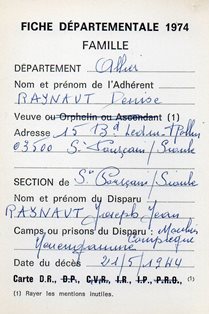 FICHE DÉPARTEMENTALE 1974
FAMILLE
DÉPARTEMENT Allier
Nom et prénom de l'Adhérent
RAYNAUT Denise
Veuve ou Orphelin ou Ascendant (1)
Adresse 15 Bd Ledru-Rollin
03500 St Pourçain/Sioule
SECTION de St Pourçain/Sioule
Nom et prénom du Disparu
RAYNAUT Joseph Jean
Camps ou prisons du Disparu : Moulins
Compiègne
Neuengamme
Date du décès 21/5/1944
Carte D.R., D.P., C.V.R., I.R., I.P., P.R.O., (1)
(1) Rayer les mentions inutiles.